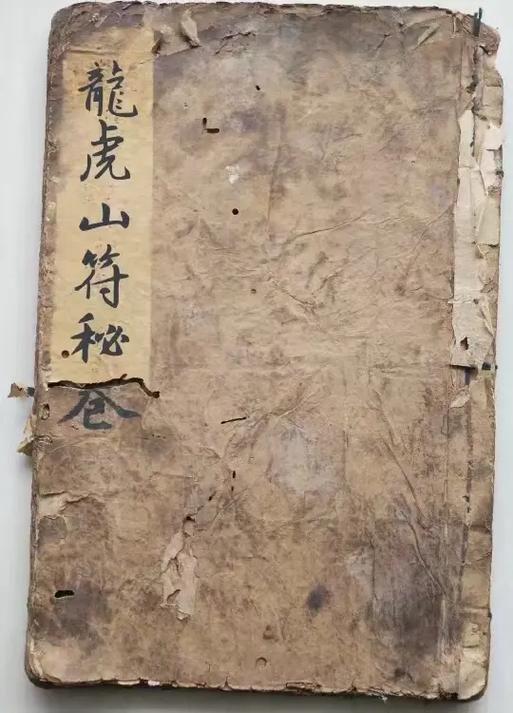 龍虎山符秘卷